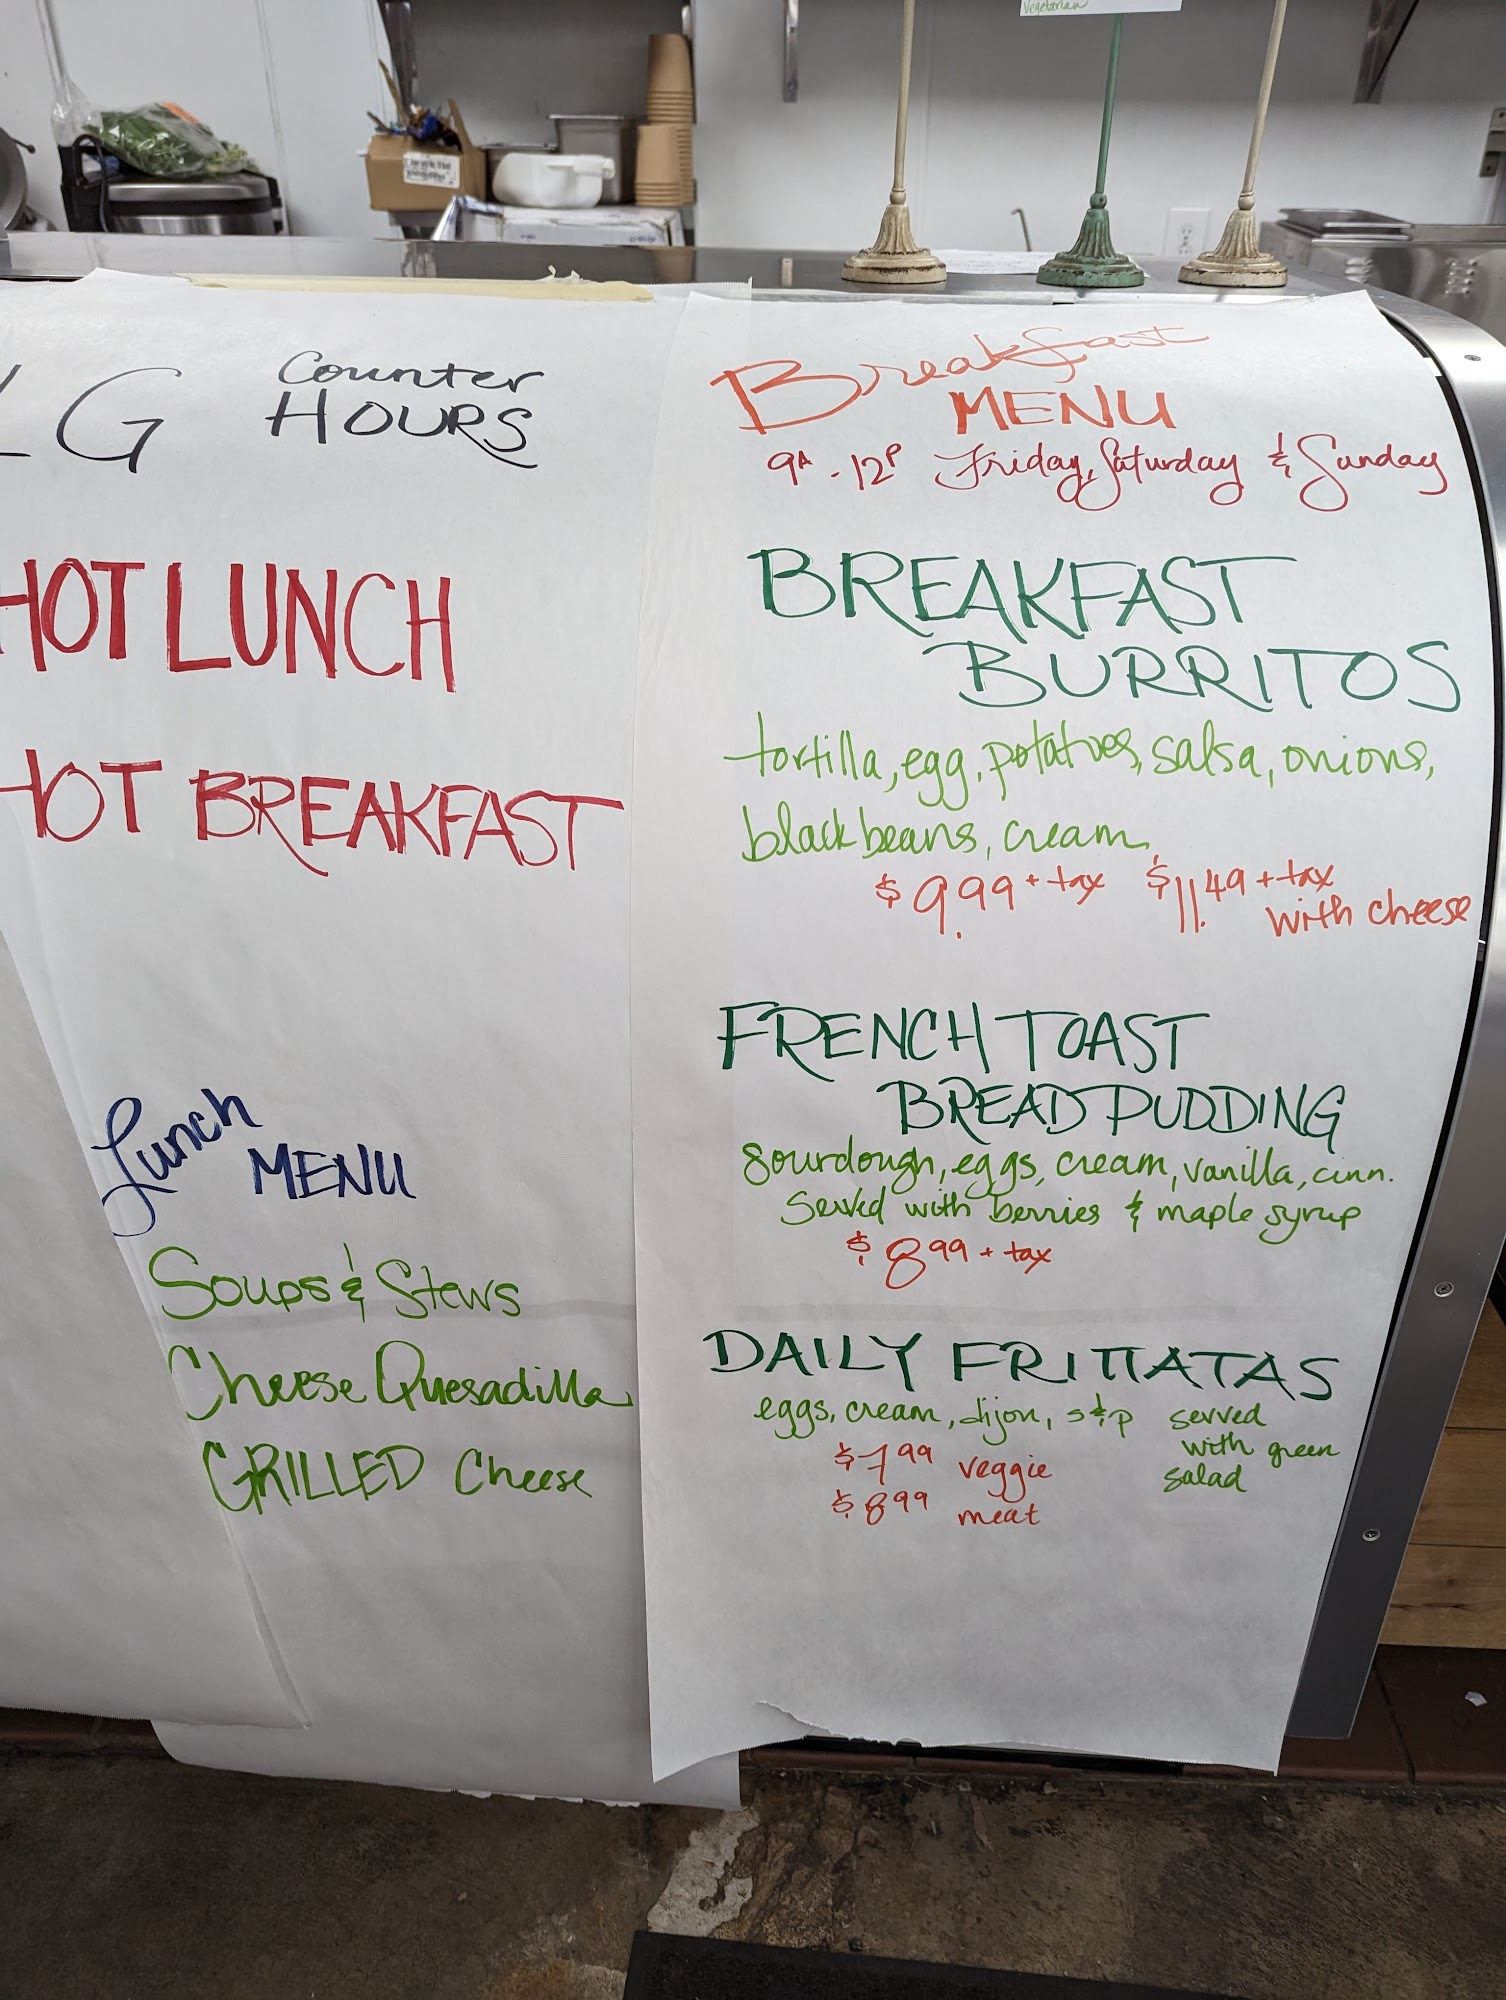 Vegetarian
LG
Counter
HOURS
HOT LUNCH
HOT BREAKFAST
Lunch
MENU
Soups & Stews
Cheese Quesadilla
GRILLED Cheese
Breakfast
MENU
9A - 12P Friday, Saturday & Sunday
BREAKFAST
BURRITOS
tortilla, egg, potatoes, salsa, onions,
black beans, cream
$9.99 + tax $11.49 + tax
with cheese
FRENCH TOAST
BREAD PUDDING
sourdough, eggs, cream, vanilla, cinn.
Served with berries & maple syrup
$8.99 + tax
DAILY FRITTATAS
eggs, cream, dijon, s&p served
with green
salad
$7.99 veggie
$8.99 meat